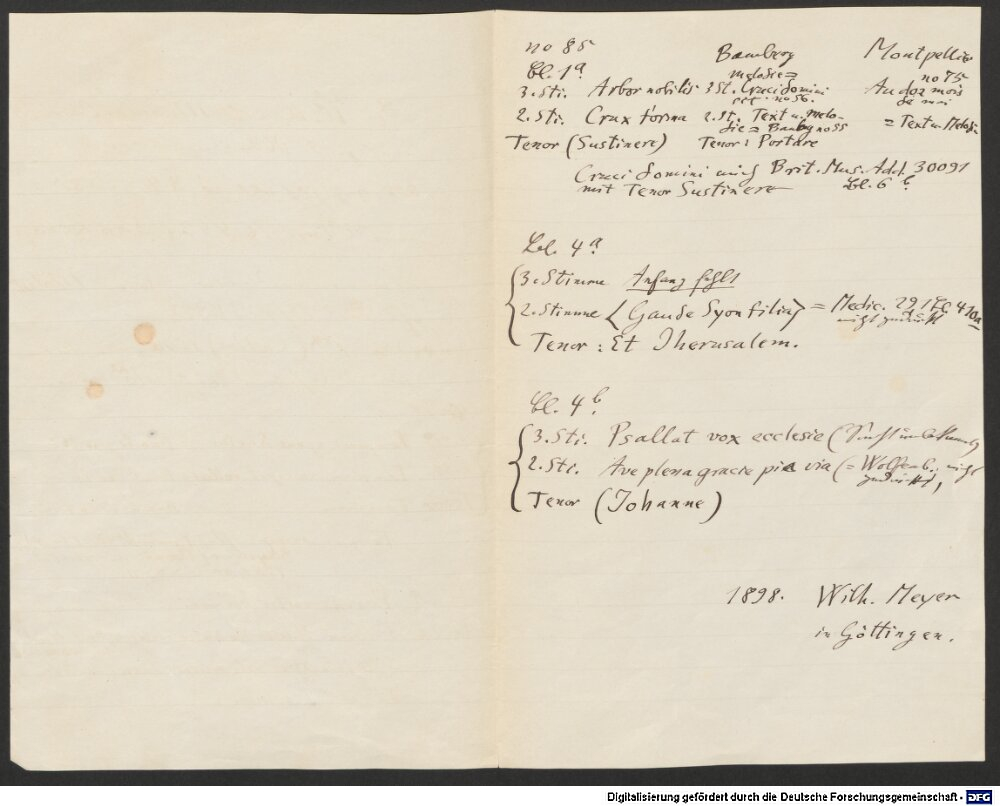 no 85
Bamberg Montpellier
Bl. 1a Melodie = no 75
3. Sti. Arbor nobilis 3 St. Cruci domini Au doz mois
etc. no 56. de mai
2. Sti. Crux forma 2. St. Text u. Melo- = Text u. Melodie
die = Bambg no 55
Tenor (Sustinere) Tenor: Portare
Cruci domini auch Brit. Mus. Add. 30091
mit Tenor Sustinere Bl. 6 b
Bl. 4a
3. Stimme Anfang fehlt
2. Stimme (Gaude Syon filia) = Medic. 29, 1 Bl. 410a
nicht gedruckt
Tenor: Et Jherusalem.
Bl. 4b.
3. Sti. Psallat vox ecclesie (
2. Sti. Ave plena gracie pia via (= Wolfenb., nicht
gedruckt)
Tenor (Johanne)
1898. Wilh. Meyer
in Göttingen.
Digitalisierung gefördert durch die Deutsche Forschungsgemeinschaft - DFG